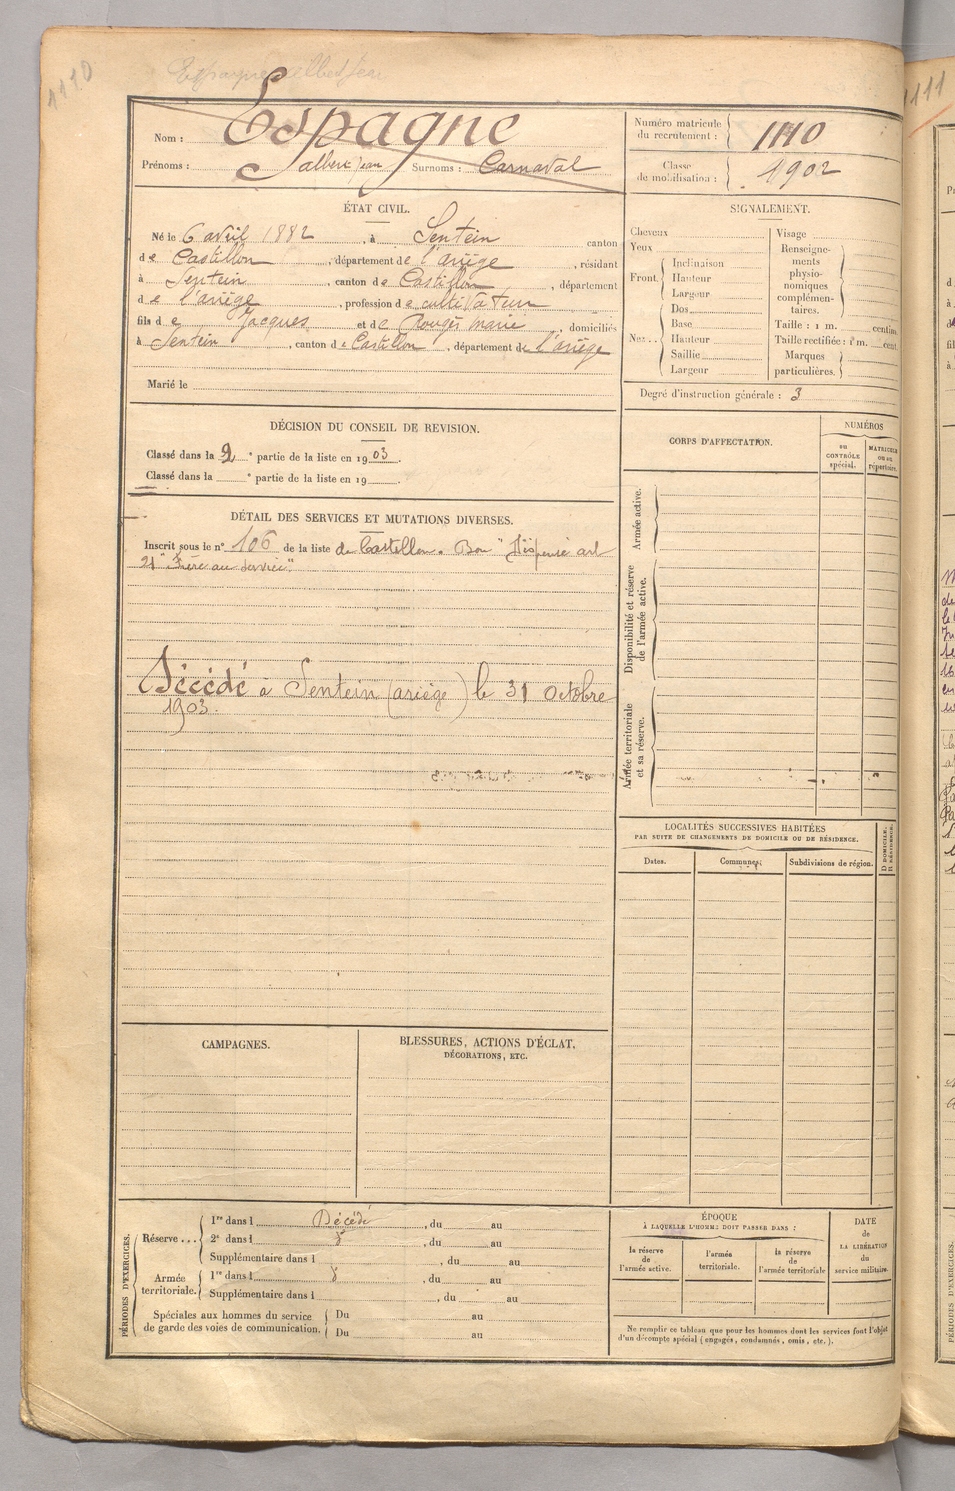 1110
Espagne Albert Jean
Nom : Espagne
Prénoms : Albert Jean Surnoms : Carnaval
Numéro matricule du recrutement : 1110
Classe de mobilisation : 1902
ÉTAT CIVIL.
Né le 6 avril 1882, à Sentein canton
de Castillon, département de l'ariège, résidant
à Sentein, canton de Castillon, département
de l'ariège, profession de cultivateur
fils de Jacques et de Rougés marie, domiciliés
à Sentein, canton de Castillon, département de l'ariège
Marié le
SIGNALEMENT.
Cheveux
Yeux
Front. Inclinaison
Hauteur
Largeur
Nez .. Dos
Base
Hauteur
Saillie
Largeur
Visage
Renseignements physionomiques complémentaires.
Taille : 1 m. centim.
Taille rectifiée : 1 m. cent.
Marques particulières.
Degré d'instruction générale : 3
DÉCISION DU CONSEIL DE REVISION.
Classé dans la 2 e partie de la liste en 1903.
Classé dans la e partie de la liste en 19 .
CORPS D'AFFECTATION.
NUMÉROS
au CONTRÔLE spécial.
MATRICULE OU AU répertoire.
Armée active.
Disponibilité et réserve de l'armée active.
Armée territoriale et sa réserve.
DÉTAIL DES SERVICES ET MUTATIONS DIVERSES.
Inscrit sous le n° 106 de la liste de Castillon. Bon "Dispensé art
21 "Frère au service".
Décédé à Sentein (ariège) le 31 octobre
1903.
LOCALITÉS SUCCESSIVES HABITÉES
PAR SUITE DE CHANGEMENTS DE DOMICILE OU DE RÉSIDENCE.
Dates.
Communes.
Subdivisions de région.
D DOMICILE.
R RÉSIDENCE.
CAMPAGNES.
BLESSURES, ACTIONS D'ÉCLAT,
DÉCORATIONS, ETC.
PÉRIODES D'EXERCICES.
Réserve ... 1re dans l Décédé, du au
2e dans l , du au
Supplémentaire dans l , du au
Armée territoriale. 1re dans l , du au
Supplémentaire dans l , du au
Spéciales aux hommes du service Du au
de garde des voies de communication. Du au
ÉPOQUE
À LAQUELLE L'HOMME DOIT PASSER DANS :
la réserve de l'armée active.
l'armée territoriale.
la réserve de l'armée territoriale
DATE de LA LIBÉRATION du service militaire.
Ne remplir ce tableau que pour les hommes dont les services font l'objet
d'un décompte spécial (engagés, condamnés, omis, etc.).
1111
PÉRIODES D'EXERCICES.